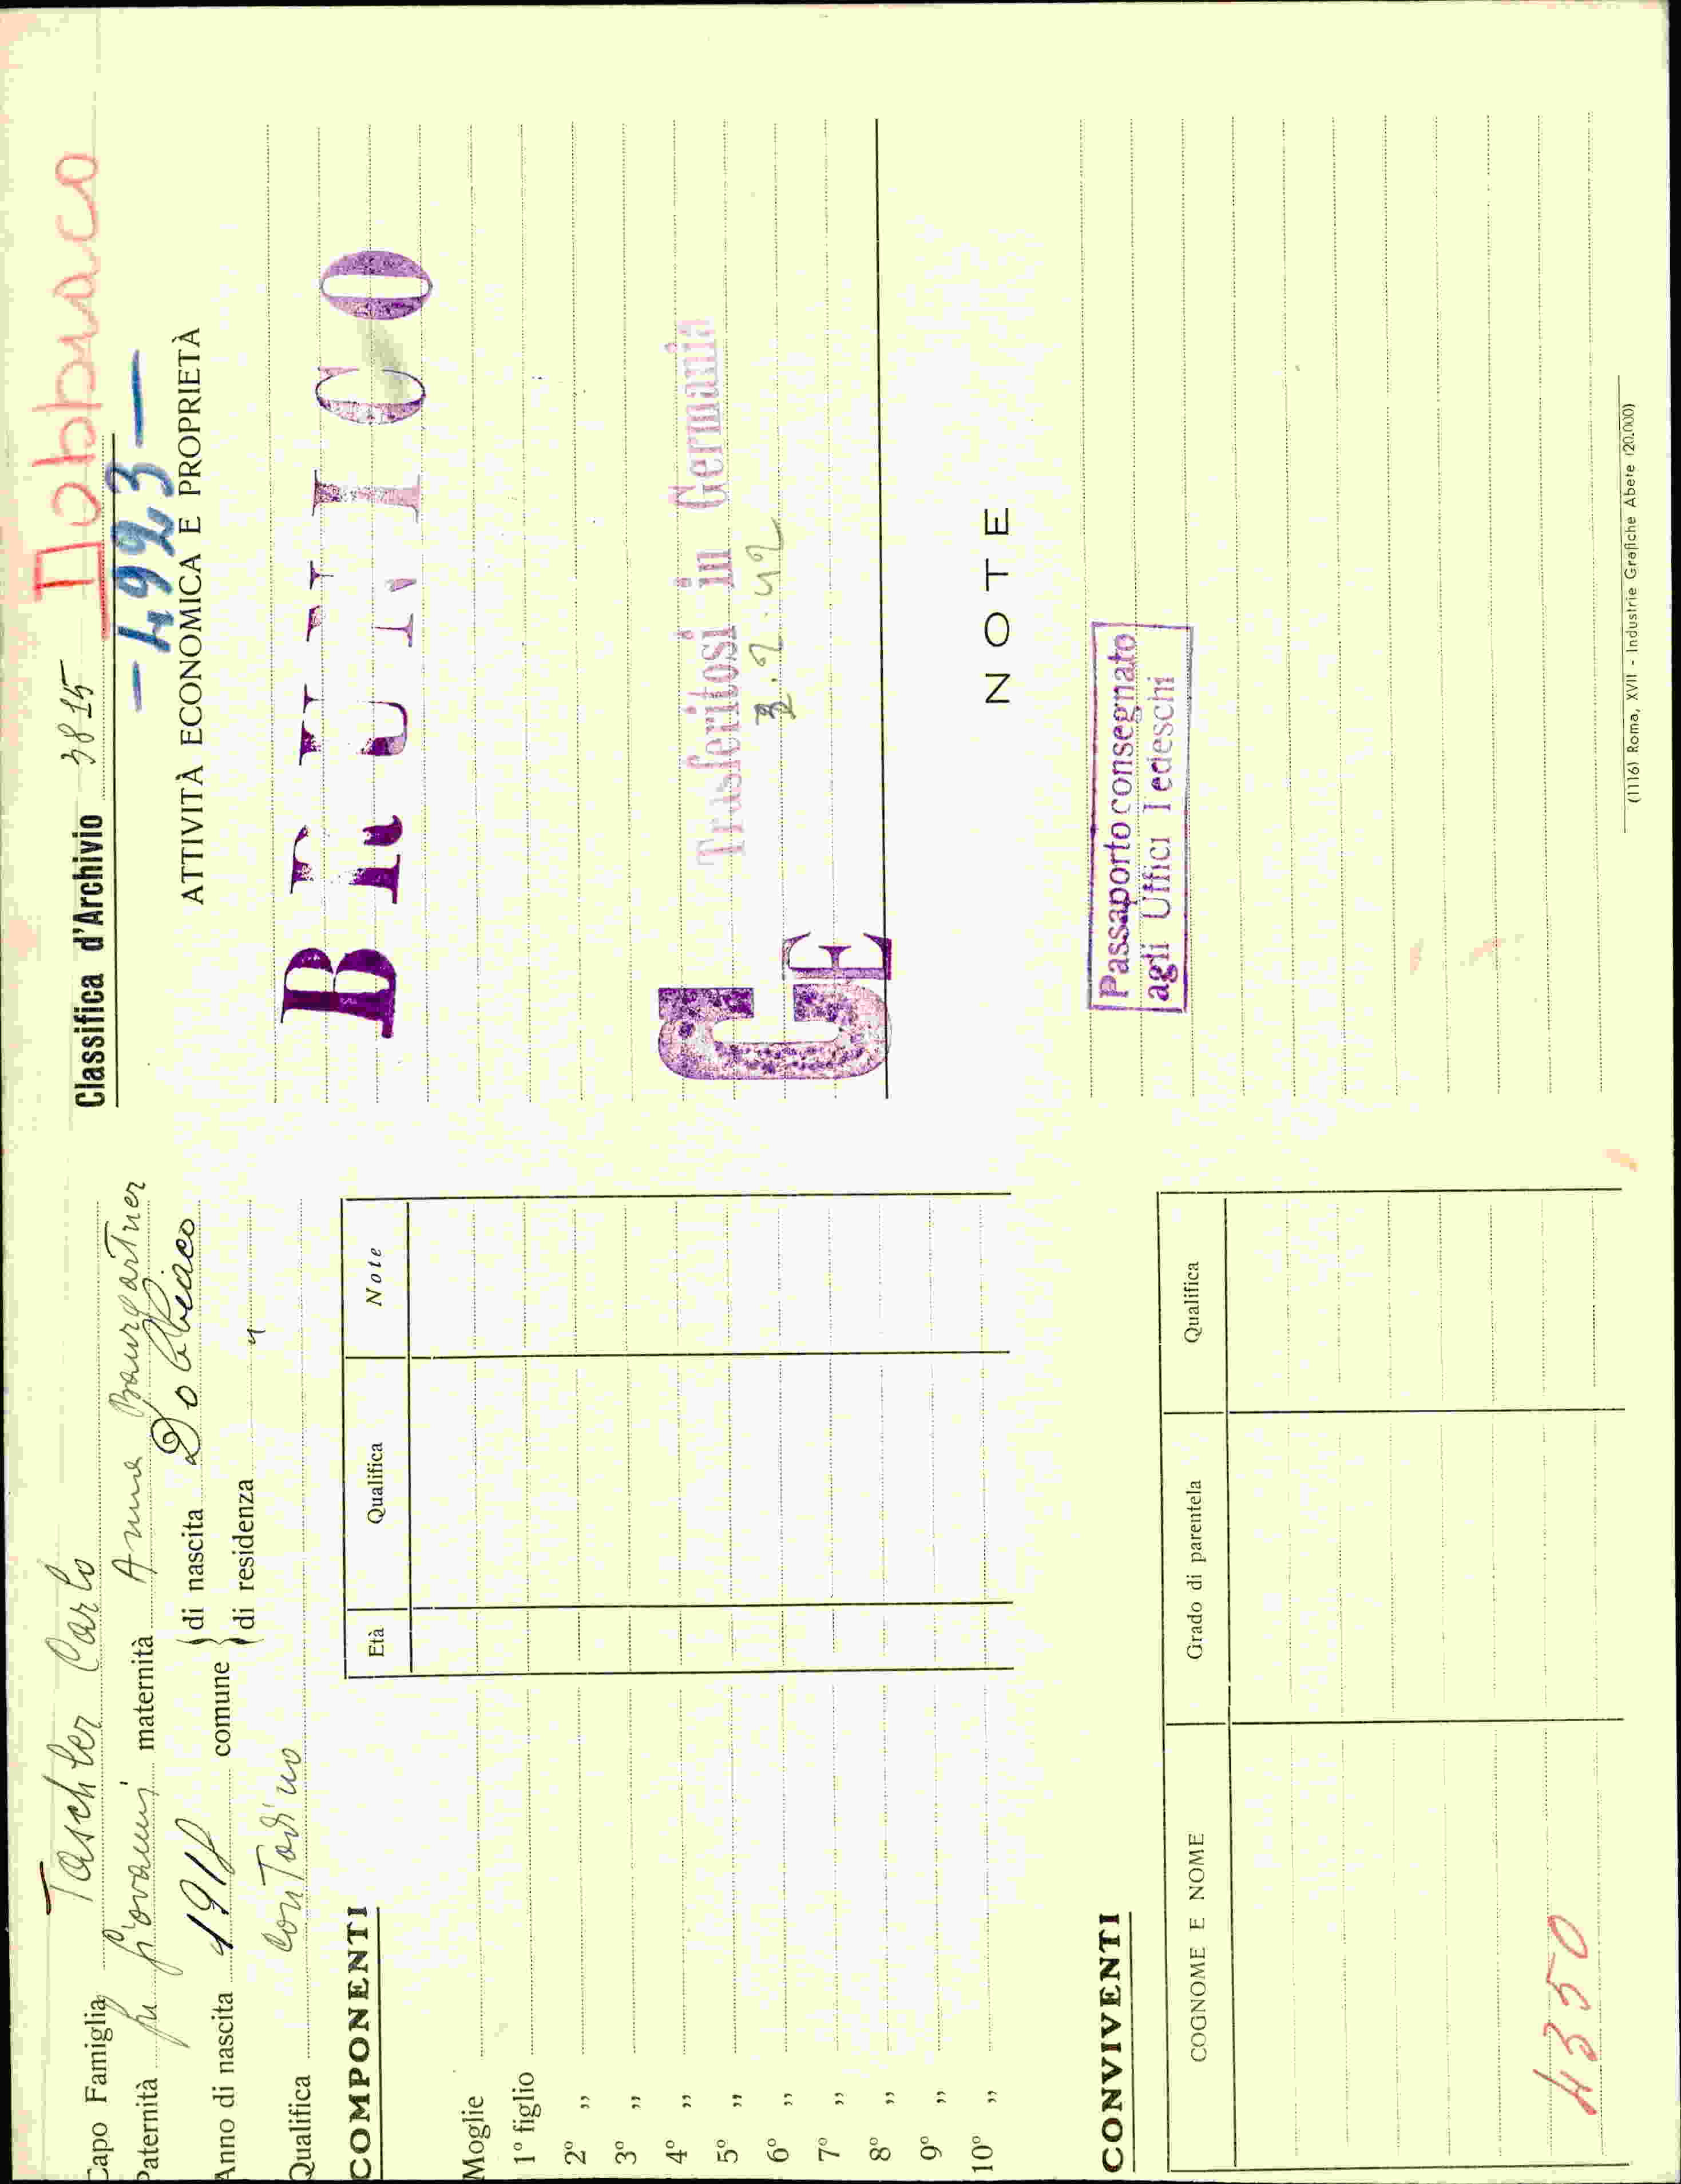 Capo Famiglia Taschler Carlo
Paternità fu Giovanni maternità Anna Baumgartner
Anno di nascita 1918 comune di nascita Dobbiaco
di residenza "
Qualifica contadino
COMPONENTI
Età Qualifica Note
Moglie
1º figlio
2º "
3º "
4º "
5º "
6º "
7º "
8º "
9º "
10º "
CONVIVENTI
COGNOME E NOME Grado di parentela Qualifica
4350
Dobbiaco
Classifica d'Archivio 3815
-4923-
ATTIVITÀ ECONOMICA E PROPRIETÀ
Trasferitosi in Germania
G E
NOTE
Passaporto consegnato
agli Uffici Tedeschi
(1116) Roma, XVII - Industrie Grafiche Abete (20.000)